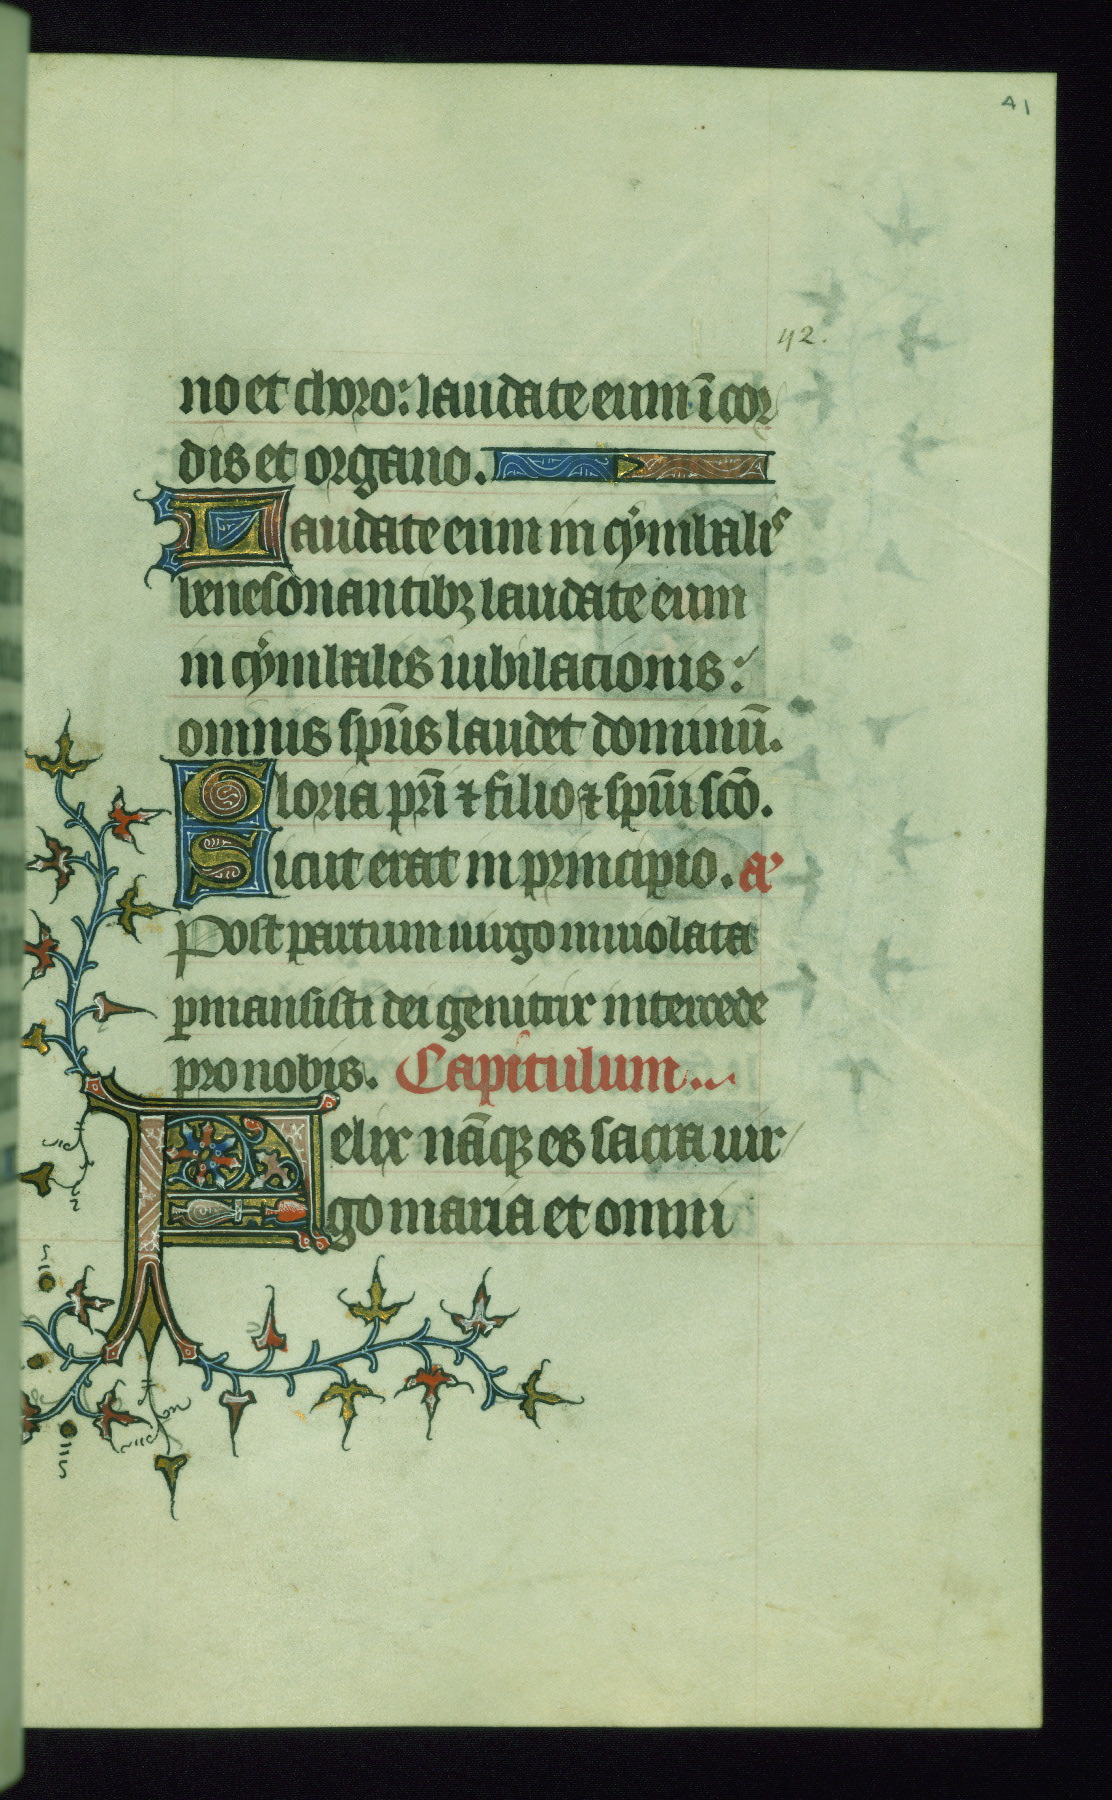 41
42.
no et choro: laudate eum ī cor
dis et organo.
Laudate eum in cymbalis
benesonantibꝫ laudate eum
in cymbalis iubilacionis:
omnis sp̄us laudet dominū.
Gloria pr̄i ⁊ filio ⁊ sp̄ui sc̄o.
Sicut erat in principio. a᷎
Post partum uirgo inuiolata
ꝑmansisti dei genitrix intercede
pro nobis. Capitulum...
Felix nāqꝫ es sacra uir
go maria et omni